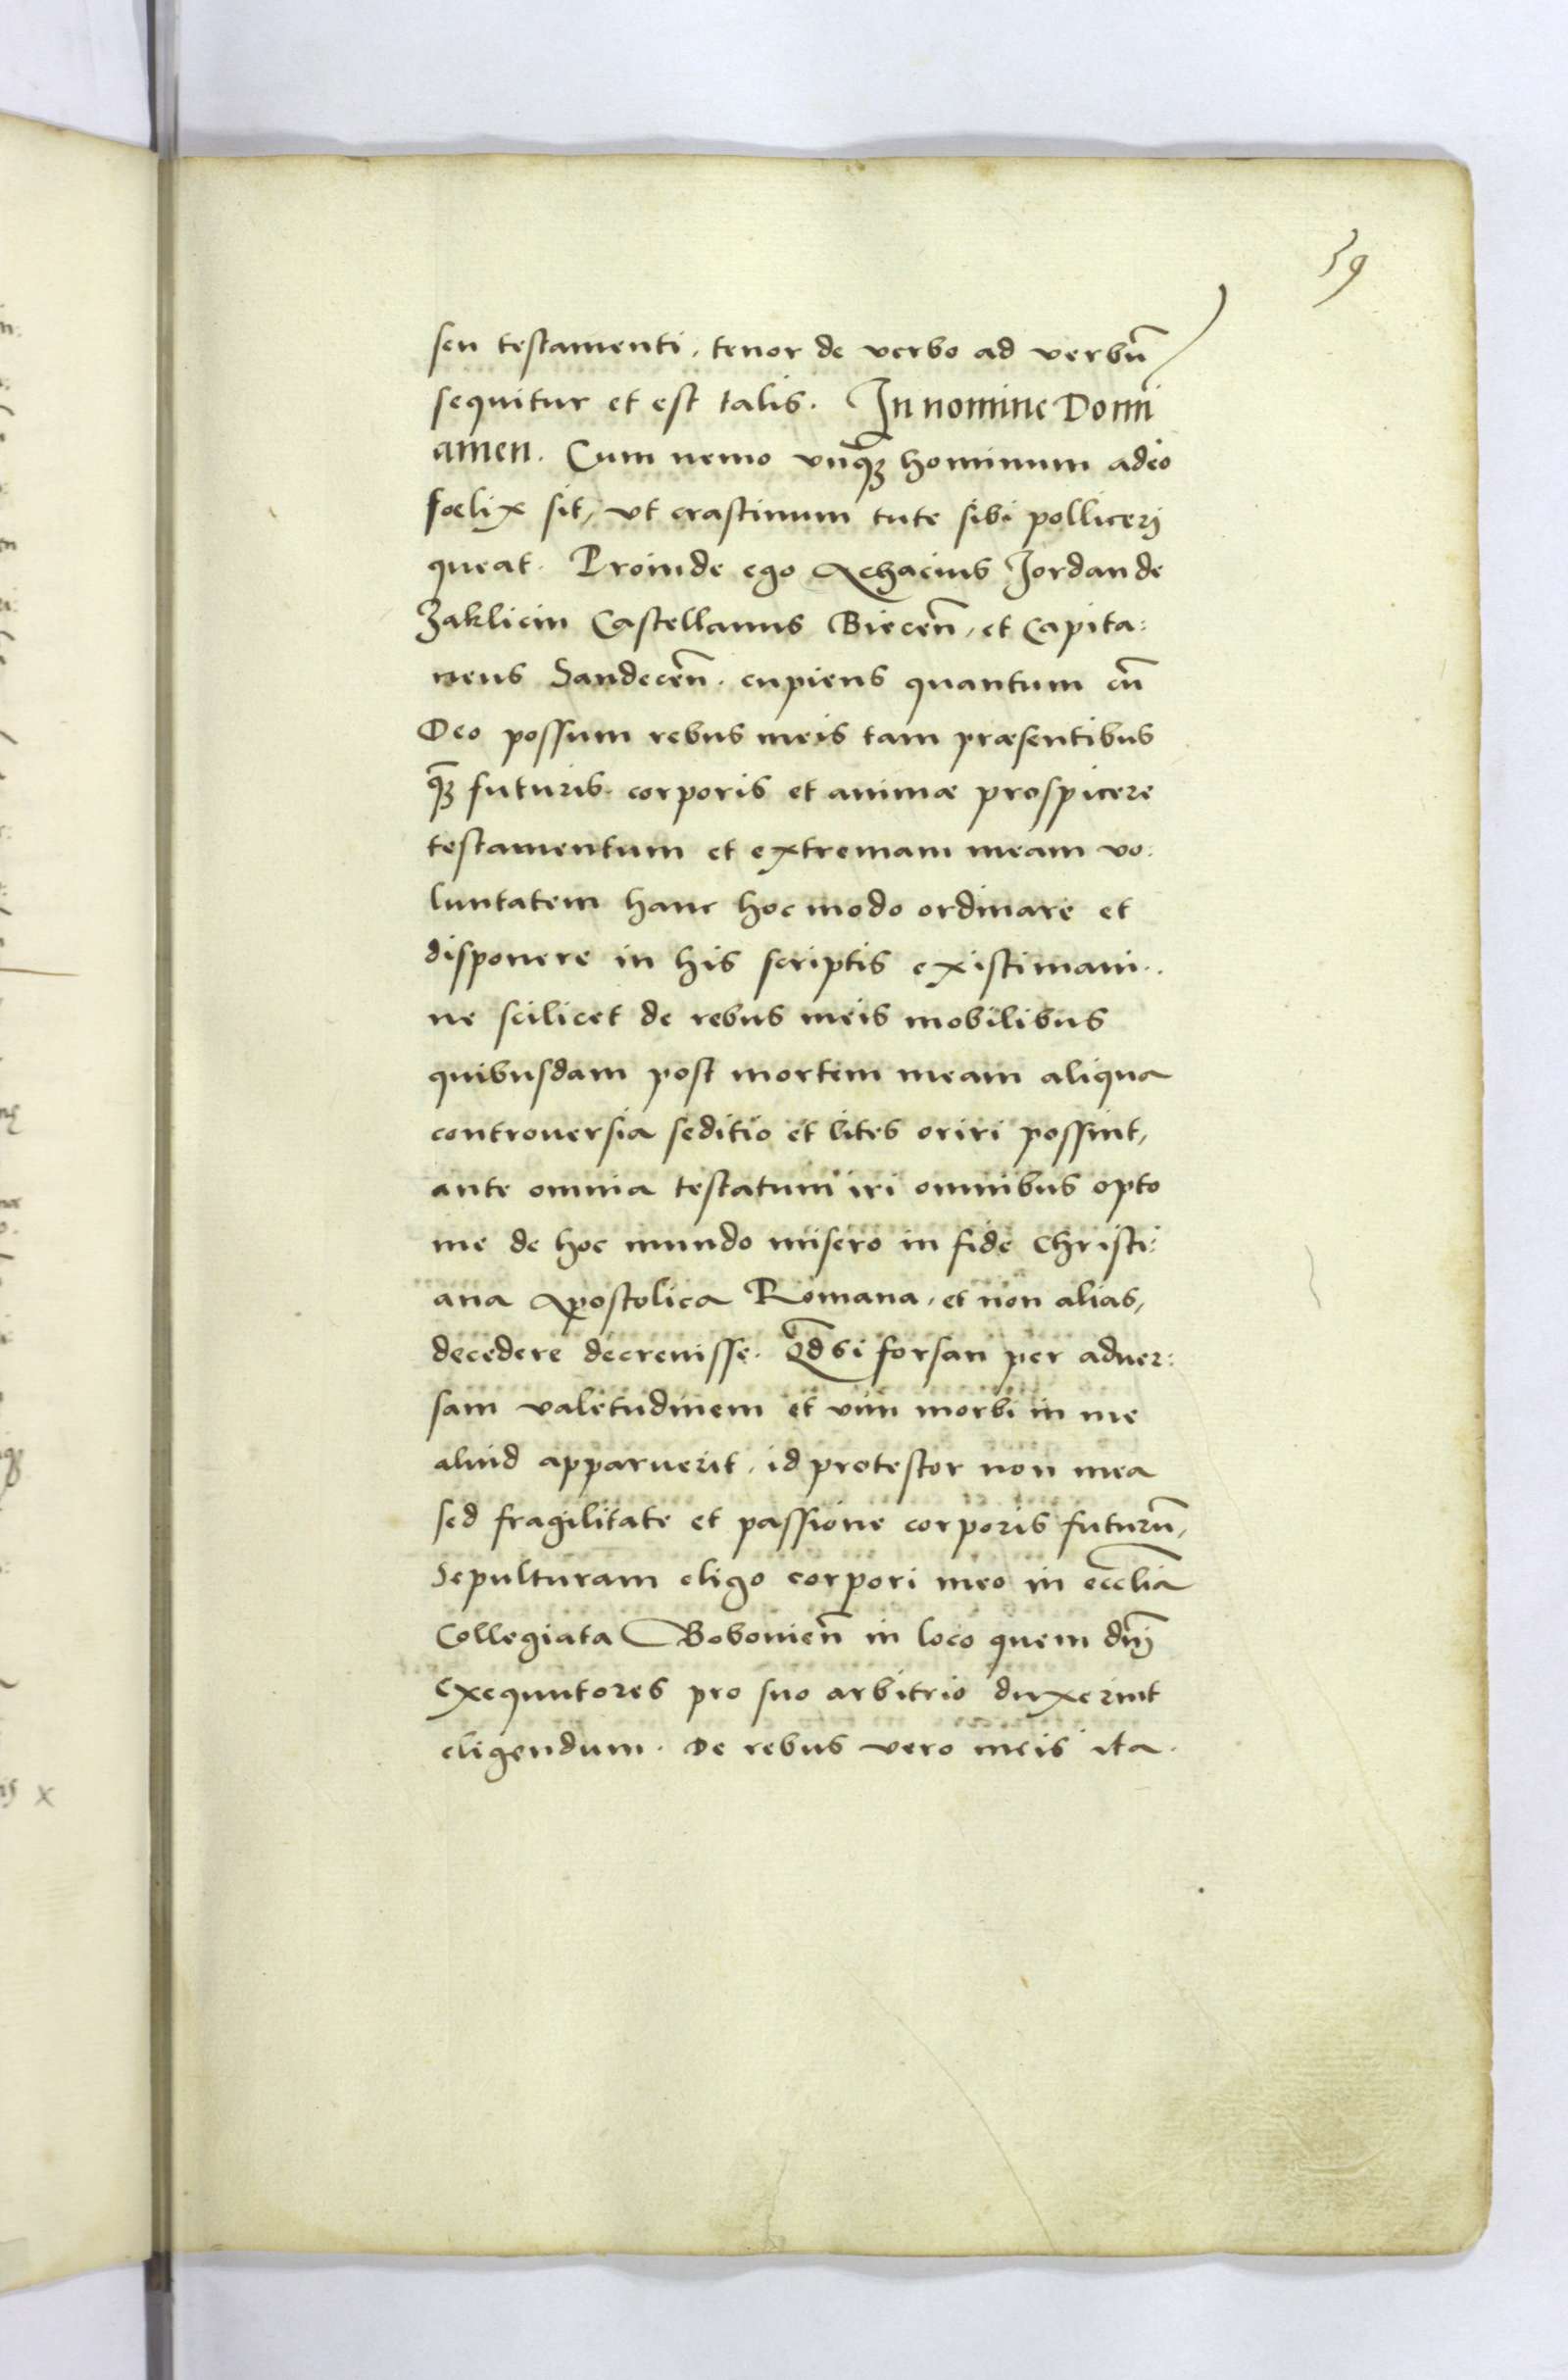 59
seu testamenti, tenor de verbo ad verbū
sequitur et est talis. In nomine Domi
amen. Cum nemo vnq̄ȝ hominum adeo
foelix sit, vt crastinum tute sibi pollicerj
queat. Proinde ego Achacius Jordan de
Zaklicin Castellanus Biecen̄, et Capita:
neus Sandecen̄. cupiens quantum cū
Deo possum rebus meis tam præsentibus
q̄ȝ futuris. corporis et animæ prospicere
testamentum et extremam meam vo:
luntatem hanc hoc modo ordinare et
disponere in his scriptis existimaui..
ne scilicet de rebus meis mobilibus
quibusdam post mortem meam aliqua
controuersia seditio et lites oriri possint,
ante omnia testatum iri omnibus opto
me de hoc mundo misero in fide Christi:
ana Apostolica Romana, et non alias,
decedere decreuisse. Qd̄ si forsan per aduer:
sam valetudinem et vim morbi in me
aliud apparuerit, id protestor non mea
sed fragilitate et passione corporis futurū,
Sepulturam eligo corpori meo in eccl̄ia
Collegiata Bobouien̄ in loco quem dn̄j
Exequutores pro suo arbitrio duxerint
eligendum. De rebus vero meis ita.